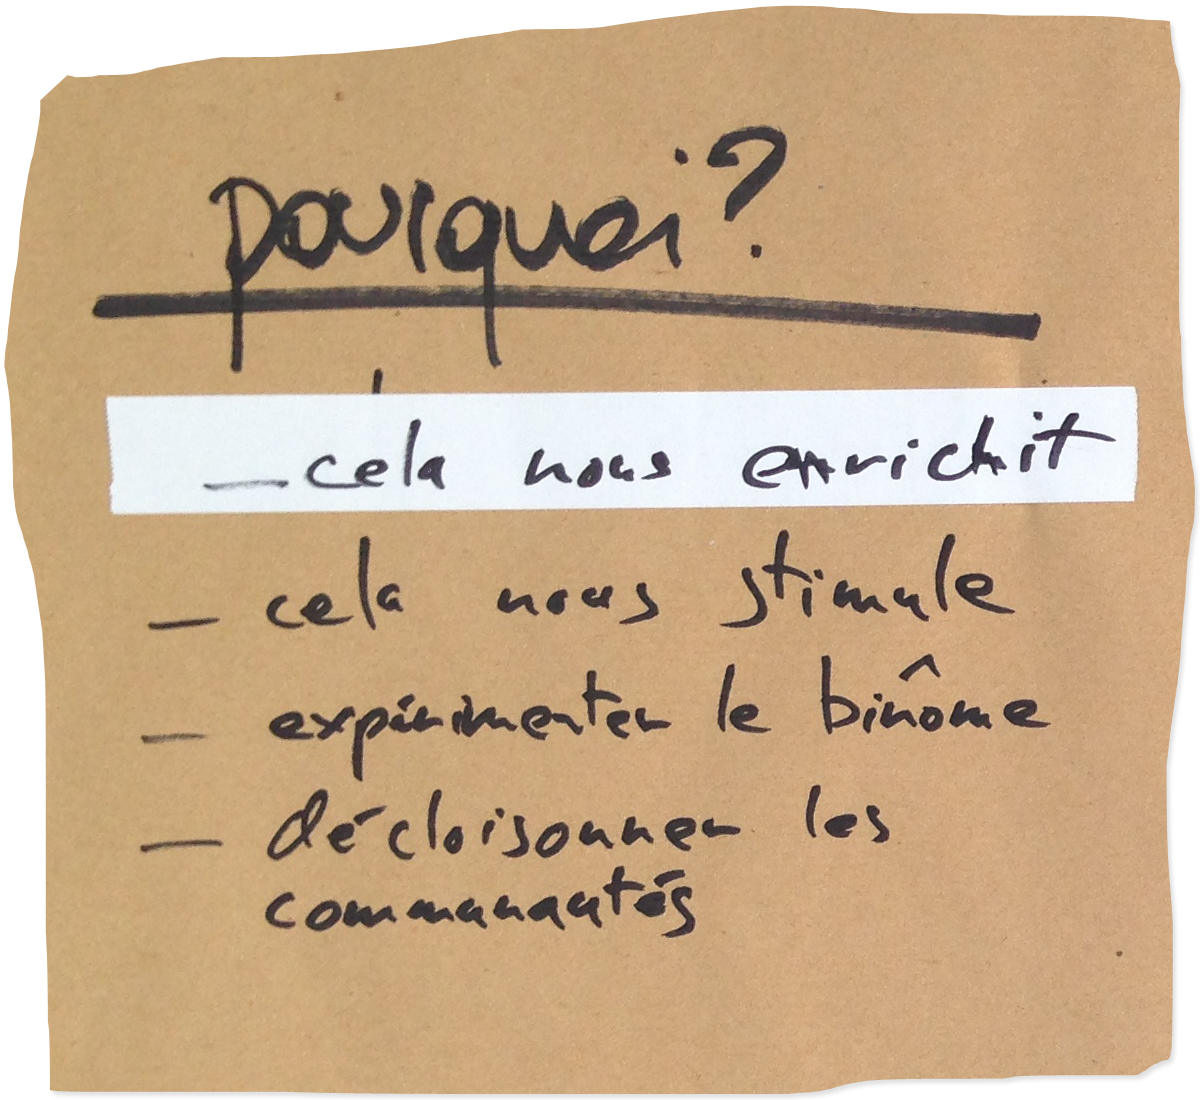 pourquoi?
— cela nous enrichit
— cela nous stimule
— expérimenter le binôme
— décloisonner les
communautés